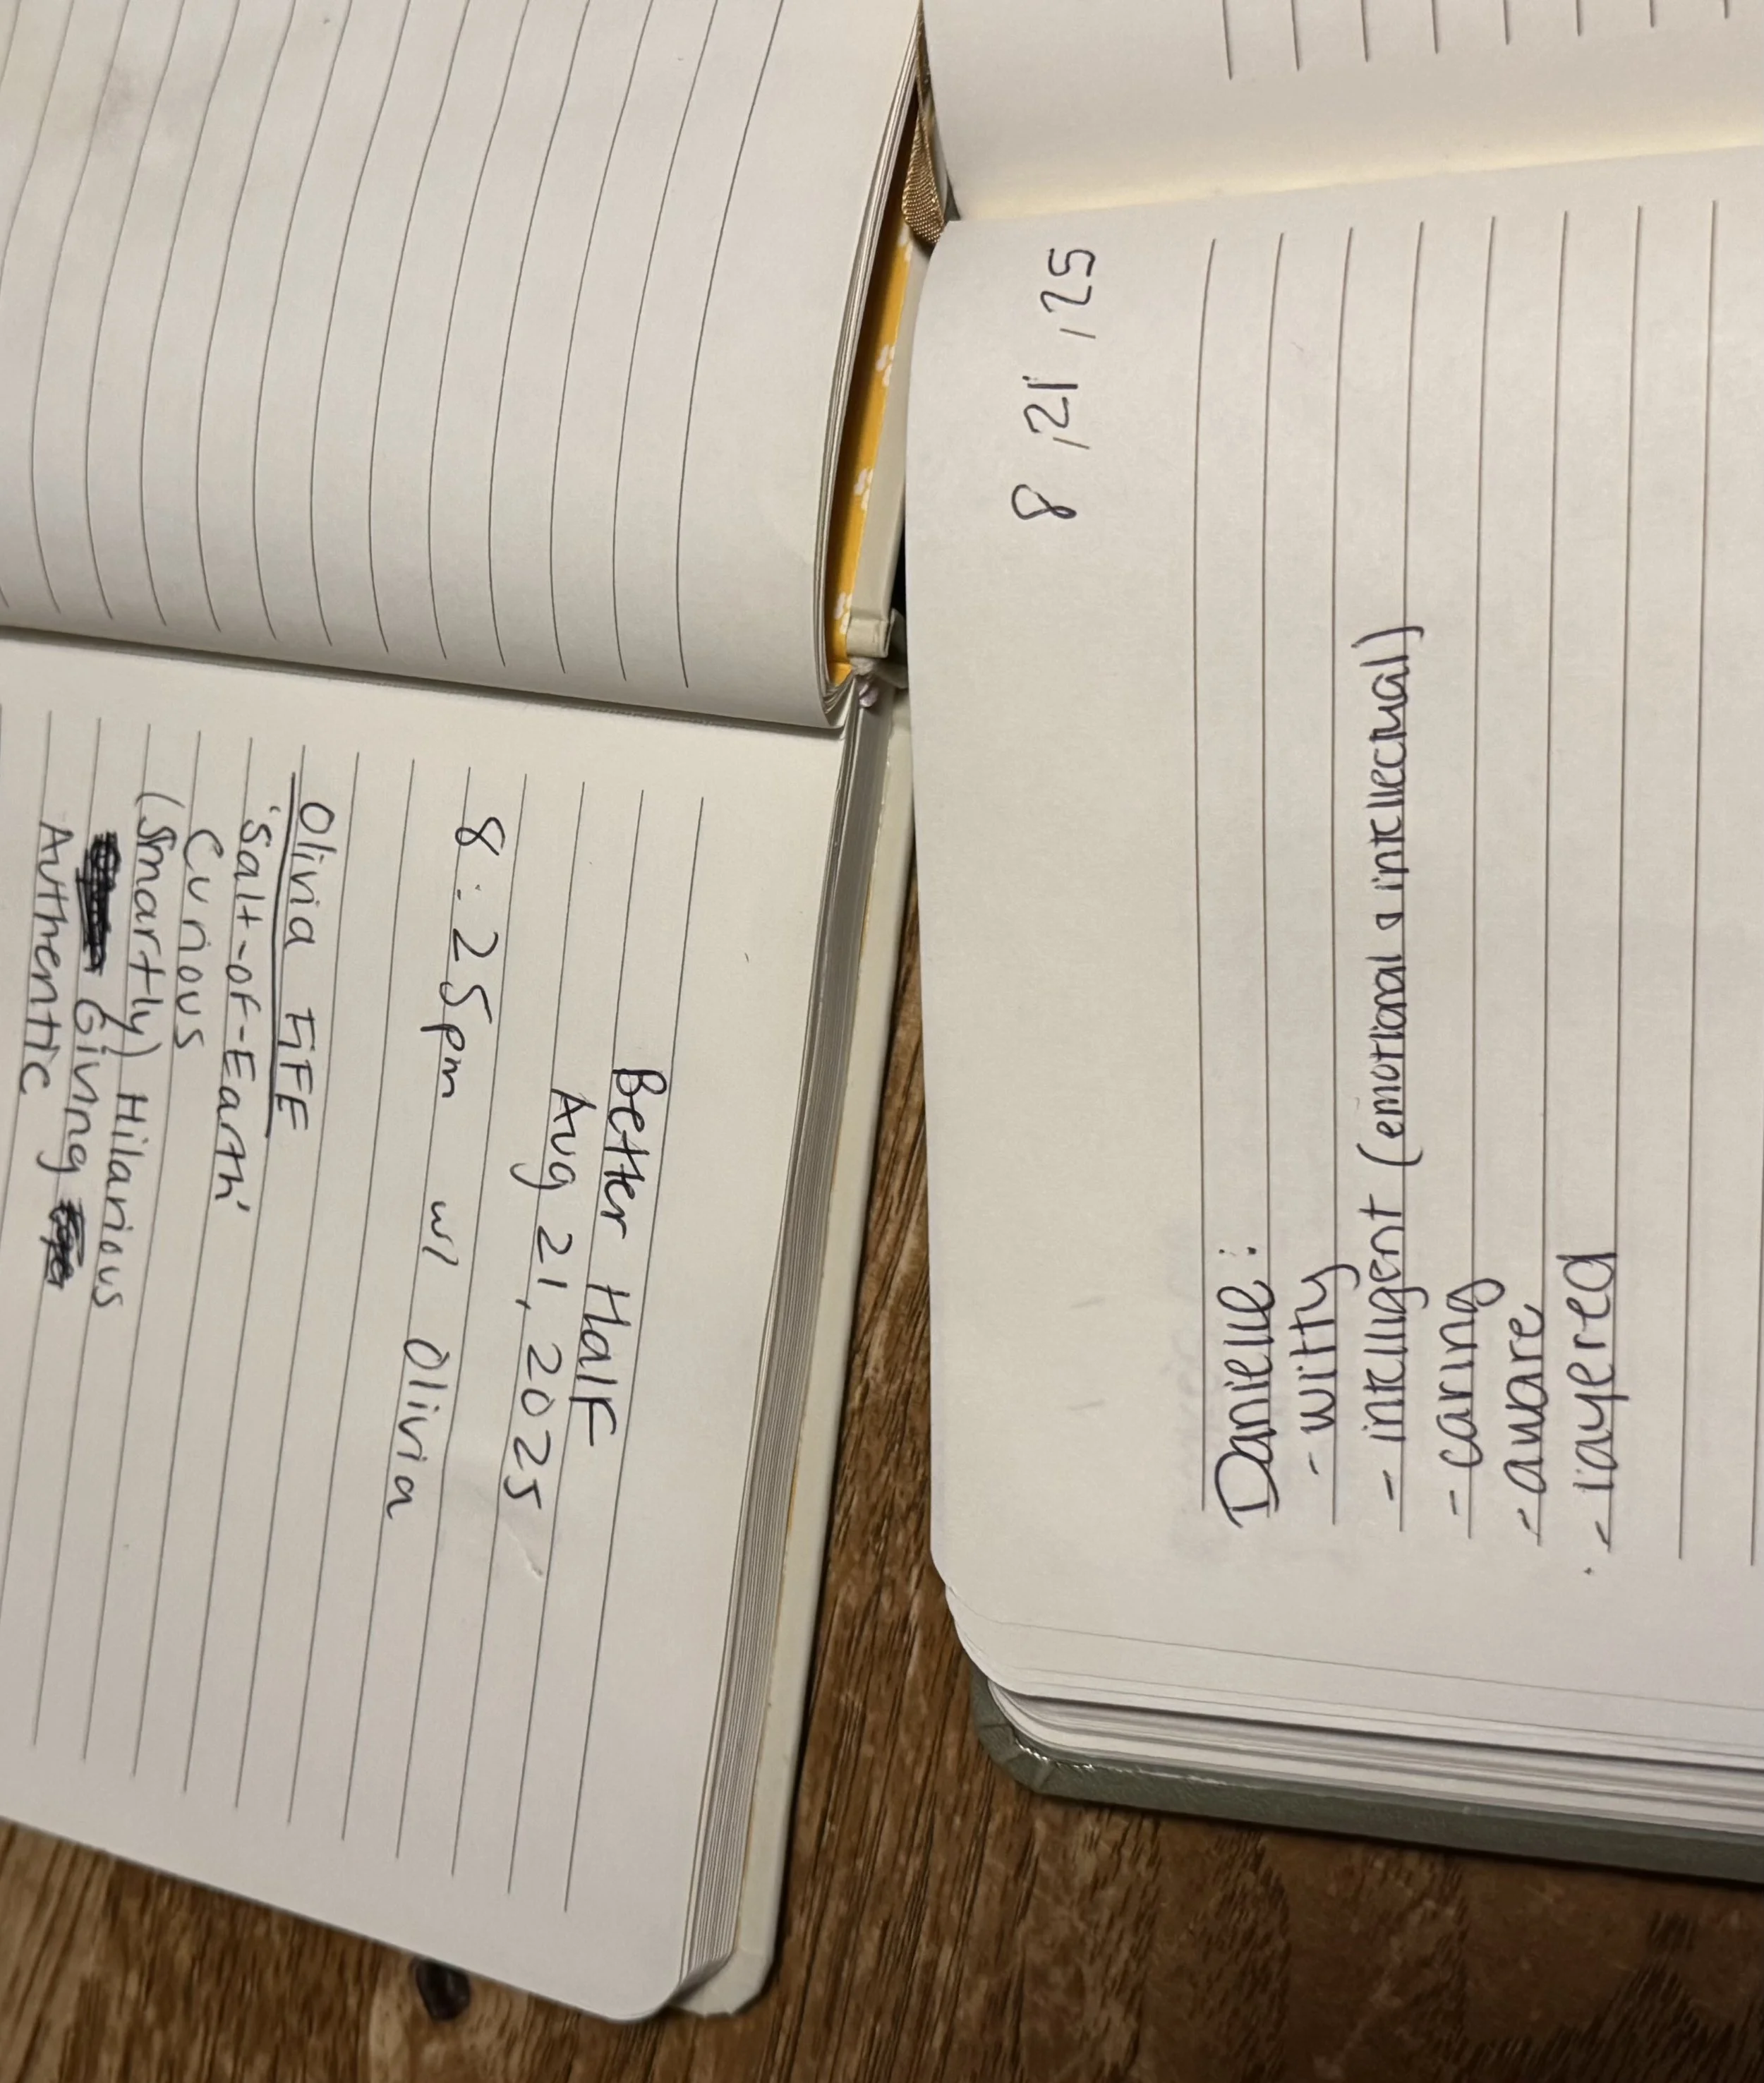 Better Half
Aug 21, 2025
8:25pm w/ Olivia
Olivia FiFE
'Salt-of-Earth'
Curious
(Smartly) Hilarious
Giving
Authentic
8, 21, 25
Danielle:
- witty
- intelligent (emotional & intellectual)
- caring
- aware
- layered